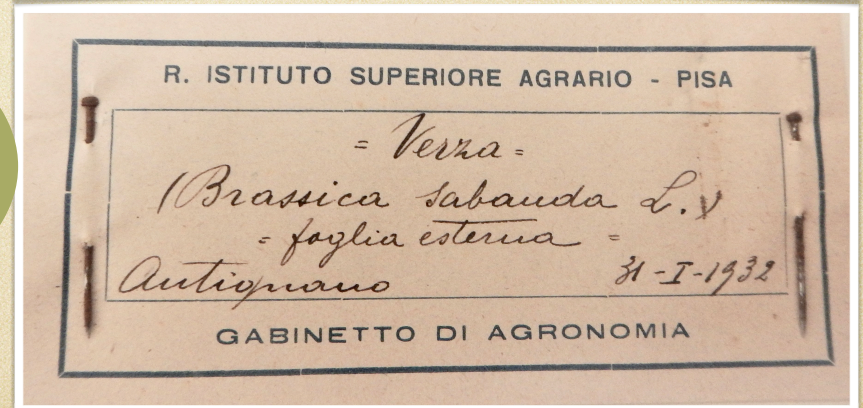 R. ISTITUTO SUPERIORE AGRARIO - PISA
= Verza =
(Brassica sabauda L.)
= foglia esterna =
Antignano 31-I-1932
GABINETTO DI AGRONOMIA